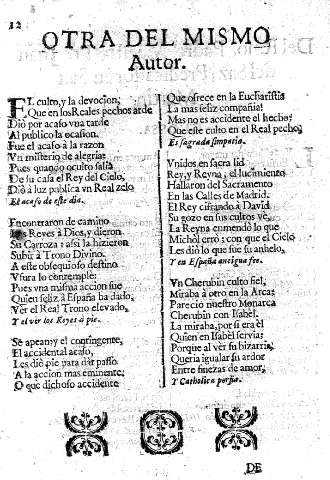 12
OTRA DEL MISMO
Autor.
EL culto, y la devocion;
Que en los Reales pechos arde
Diò por acaso vna tarde
Al publico la ocasion.
Fue el acaso à la razon
Vn misterio de alegria:
Pues quando oculto salia
De su casa el Rey del Cielo,
Diò à luz publica vn Real zelo
El acaso de este dia.
Encontraron de camino
Reyes à Dios, y dieron
Su Carroza: assi la hizieron
Subir à Trono Divino.
A este obsequioso destino
Vsura lo contemple:
Pues vna misma accion fue
Quien feliz à España ha dado,
Ver el Real Trono elevado,
Y el ver los Reyes à pie.
Se apean; y el contingente,
El accidental acaso,
Les diò pie para dàr passo
A la accion mas eminente:
O que dichoso accidente
Que ofrece en la Eucharistia
La mas feliz compañia!
Mas no es accidente el hecho;
Que este culto en el Real pecho,
Es sagrada simpatia.
Vnidos en sacra lid
Rey, y Reyna, el lucimiento
Hallaron del Sacramento
En las Calles de Madrid.
El Rey cifrando à David
Su gozo en sus cultos vè,
La Reyna enmendò lo que
Michòl errò; con que el Cielo
Les diò lo que fue su anhelo,
Y en España antigua fee.
Vn Cherubin culto fiel,
Miraba à otro en la Arca:
Pareciò nuestro Monarca
Cherubin con Isabèl.
La miraba, por si era èl
Quien en Isabèl servia;
Porque al vèr su bizarria,
Queria igualar su ardor
Entre finezas de amor,
Y Catholica porfia.
DE